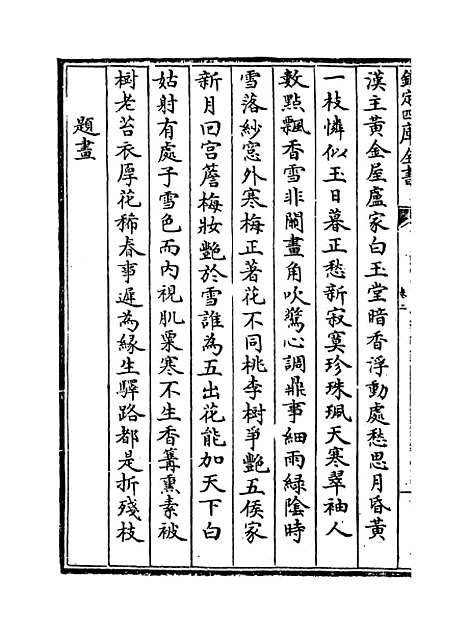 欽定四庫全書
卷二
漢主黃金屋盧家白玉堂暗香浮動處愁思月昏黃
一枝憐似玉日暮正愁新寂寞珍珠珮天寒翠袖人
數點飄香雪非關畫角吹驚心調鼎事細雨綠陰時
雪落紗窓外寒梅正著花不同桃李樹爭艷五侯家
新月囘宫簷梅妝艷於雪誰為五出花能加天下白
姑射有處子雪色而内視肌粟寒不生香篝熏素被
樹老苔衣厚花稀春事遲為緣生驛路都是折殘枝
題畫